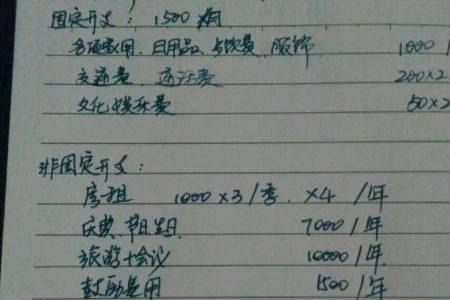 固定开支：1500/月
各项家用、日用品、与饮费、服饰 1000/
交通费、通话费 200×2
文化娱乐费 50×2
非固定开支：
房租 1000×3/季、×4/年
庆典、节日、生日 7000/年
旅游+会议 10000/年
鼓励费用 1500/年